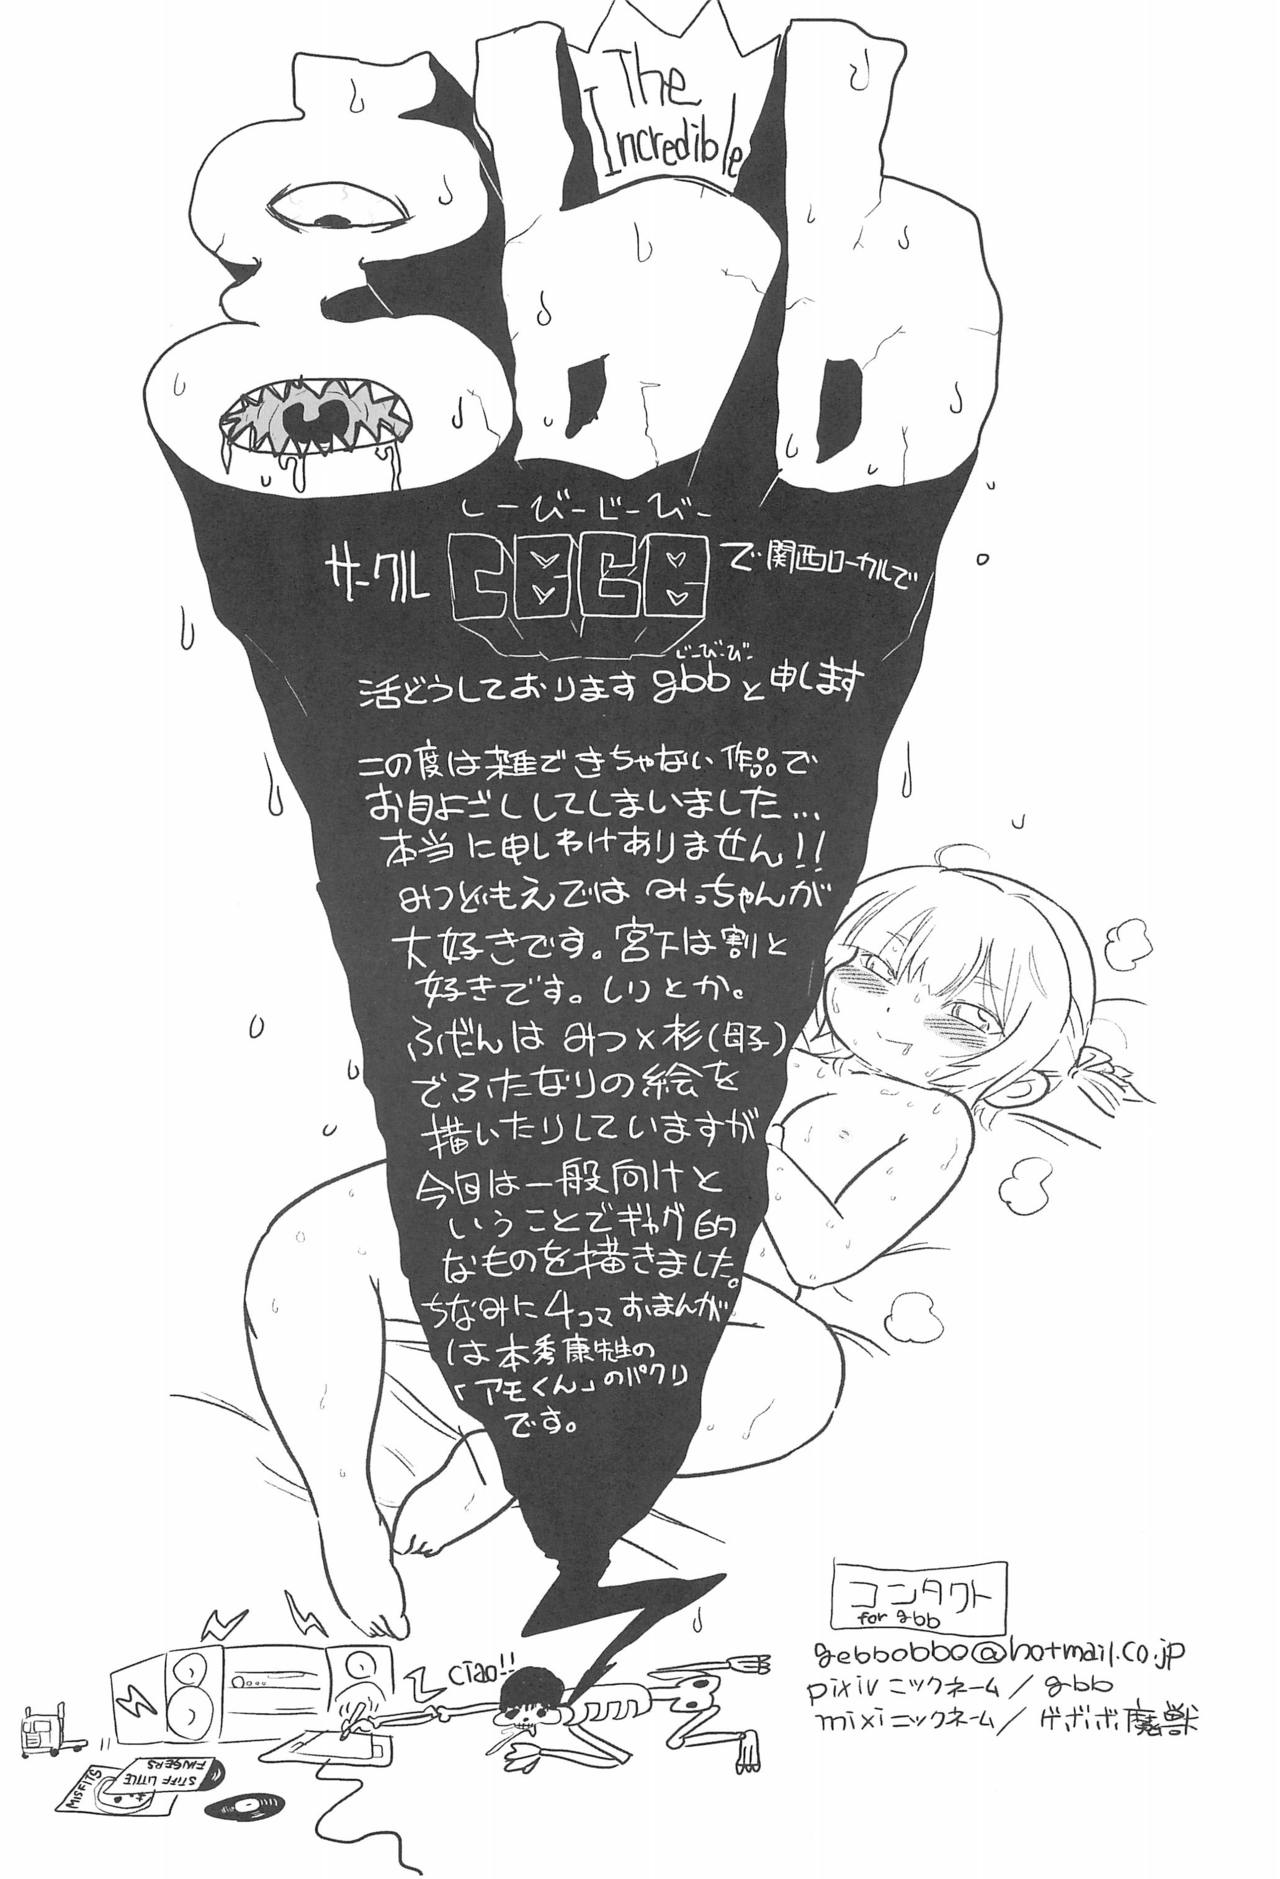 The
Incredible
gbb
しーびーじーびー
サークル CBGB で関西ローカルで
じーびーびー
活どうしております gbbと申します
この度は雑できちゃない作品で
お目よごししてしまいました…
本当に申しわけありません!!
みつどもえでは みっちゃんが
大好きです。宮下は割と
好きです。しりとか。
ふだんは みつ×杉(母子)
でふたなりの絵を
描いたりしていますが
今回は一般向けと
いうことでギャグ的
なものを描きました。
ちなみに4コマおまんが
は本秀康先生の
「アモくん」のパクリ
です。
コンタクト
for gbb
gebbobbo@hotmail.co.jp
pixivニックネーム/gbb
mixiニックネーム/ゲボボ魔獣
ciao!!
STIFF LITTLE
FINGERS
MISFITS